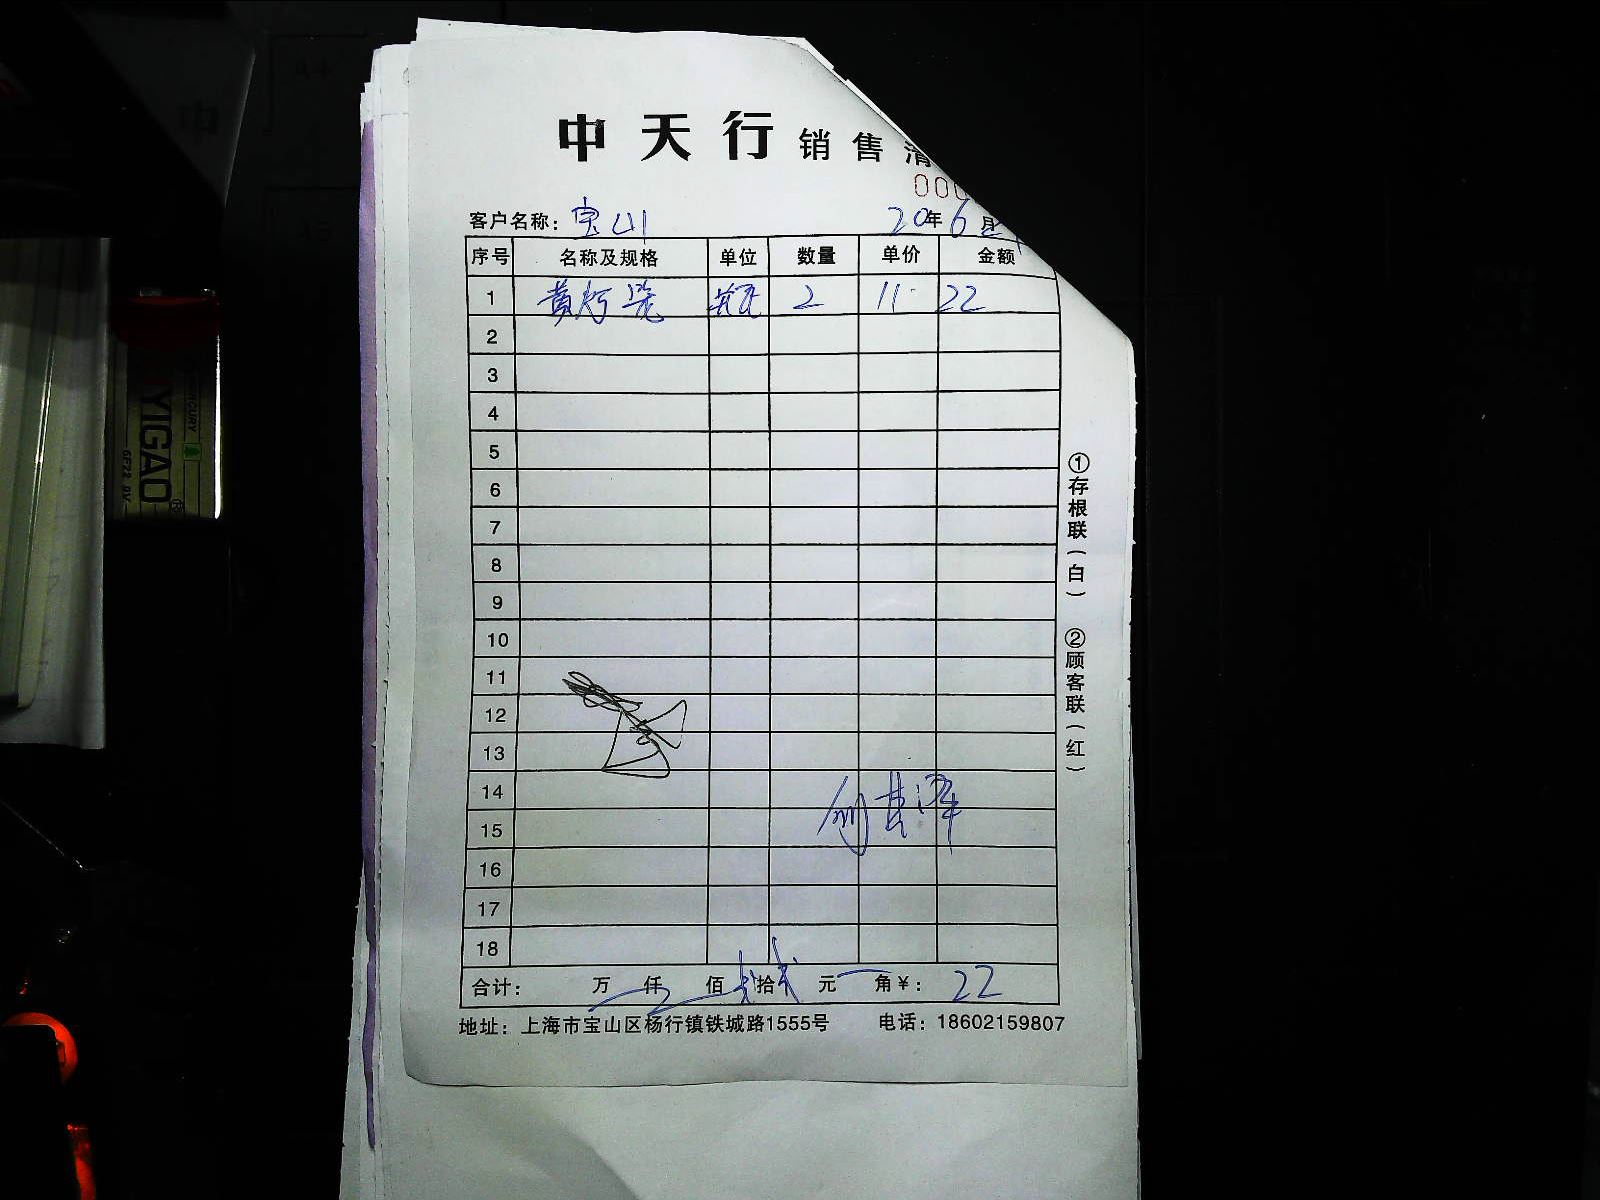 中天行 销售清
000
客户名称：宝山 20年6月
序号 名称及规格 单位 数量 单价 金额
1 瓶 2 11 22
2
3
4
5
6
7
8
9
10
11
12
13
14
15
16
17
18
合计： 万 仟 佰 贰拾贰元 角￥：22
地址：上海市宝山区杨行镇铁城路1555号 电话：18602159807
①存根联（白） ②顾客联（红）
YIGAO
6F22 9V